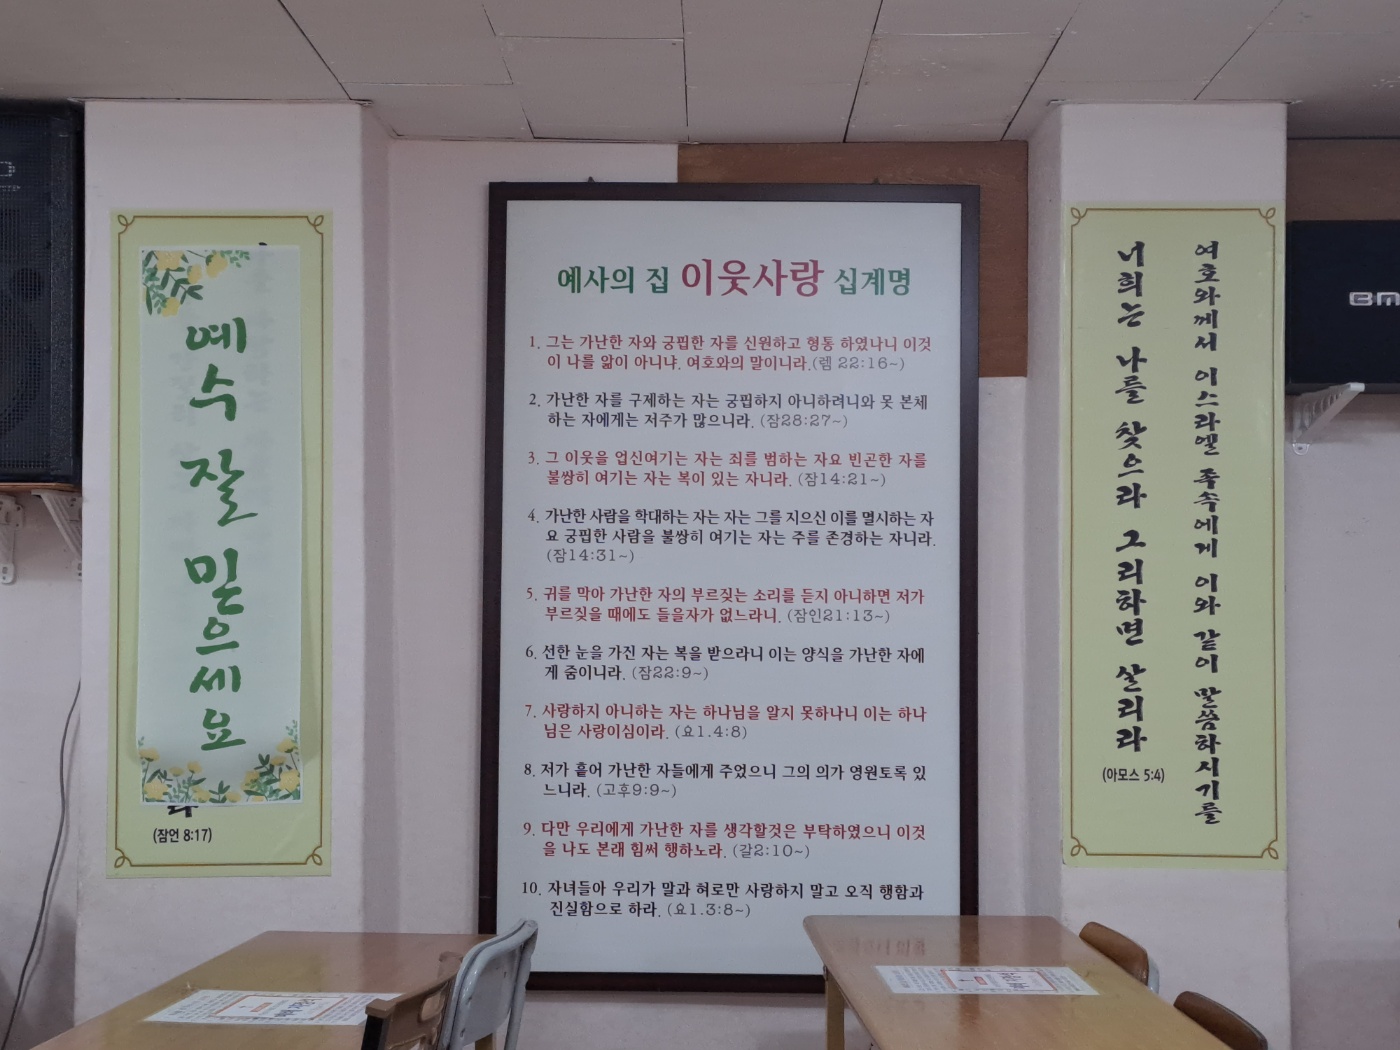 예수 잘 믿으세요
라
(잠언 8:17)
예사의 집 이웃사랑 십계명
1. 그는 가난한 자와 궁핍한 자를 신원하고 형통 하였나니 이것
이 나를 앎이 아니냐. 여호와의 말이니라.(렘 22:16~)
2. 가난한 자를 구제하는 자는 궁핍하지 아니하려니와 못 본체
하는 자에게는 저주가 많으니라. (잠28:27~)
3. 그 이웃을 업신여기는 자는 죄를 범하는 자요 빈곤한 자를
불쌍히 여기는 자는 복이 있는 자니라. (잠14:21~)
4. 가난한 사람을 학대하는 자는 자는 그를 지으신 이를 멸시하는 자
요 궁핍한 사람을 불쌍히 여기는 자는 주를 존경하는 자니라.
(잠14:31~)
5. 귀를 막아 가난한 자의 부르짖는 소리를 듣지 아니하면 저가
부르짖을 때에도 들을자가 없느라니. (잠인21:13~)
6. 선한 눈을 가진 자는 복을 받으라니 이는 양식을 가난한 자에
게 줌이니라. (잠22:9~)
7. 사랑하지 아니하는 자는 하나님을 알지 못하나니 이는 하나
님은 사랑이심이라. (요1.4:8)
8. 저가 흩어 가난한 자들에게 주었으니 그의 의가 영원토록 있
느니라. (고후9:9~)
9. 다만 우리에게 가난한 자를 생각할것은 부탁하였으니 이것
을 나도 본래 힘써 행하노라. (갈2:10~)
10. 자녀들아 우리가 말과 혀로만 사랑하지 말고 오직 행함과
진실함으로 하라. (요1.3:8~)
여호와께서 이스라엘 족속에게 이와 같이 말씀하시기를
너희는 나를 찾으라 그리하면 살리라
(아모스 5:4)